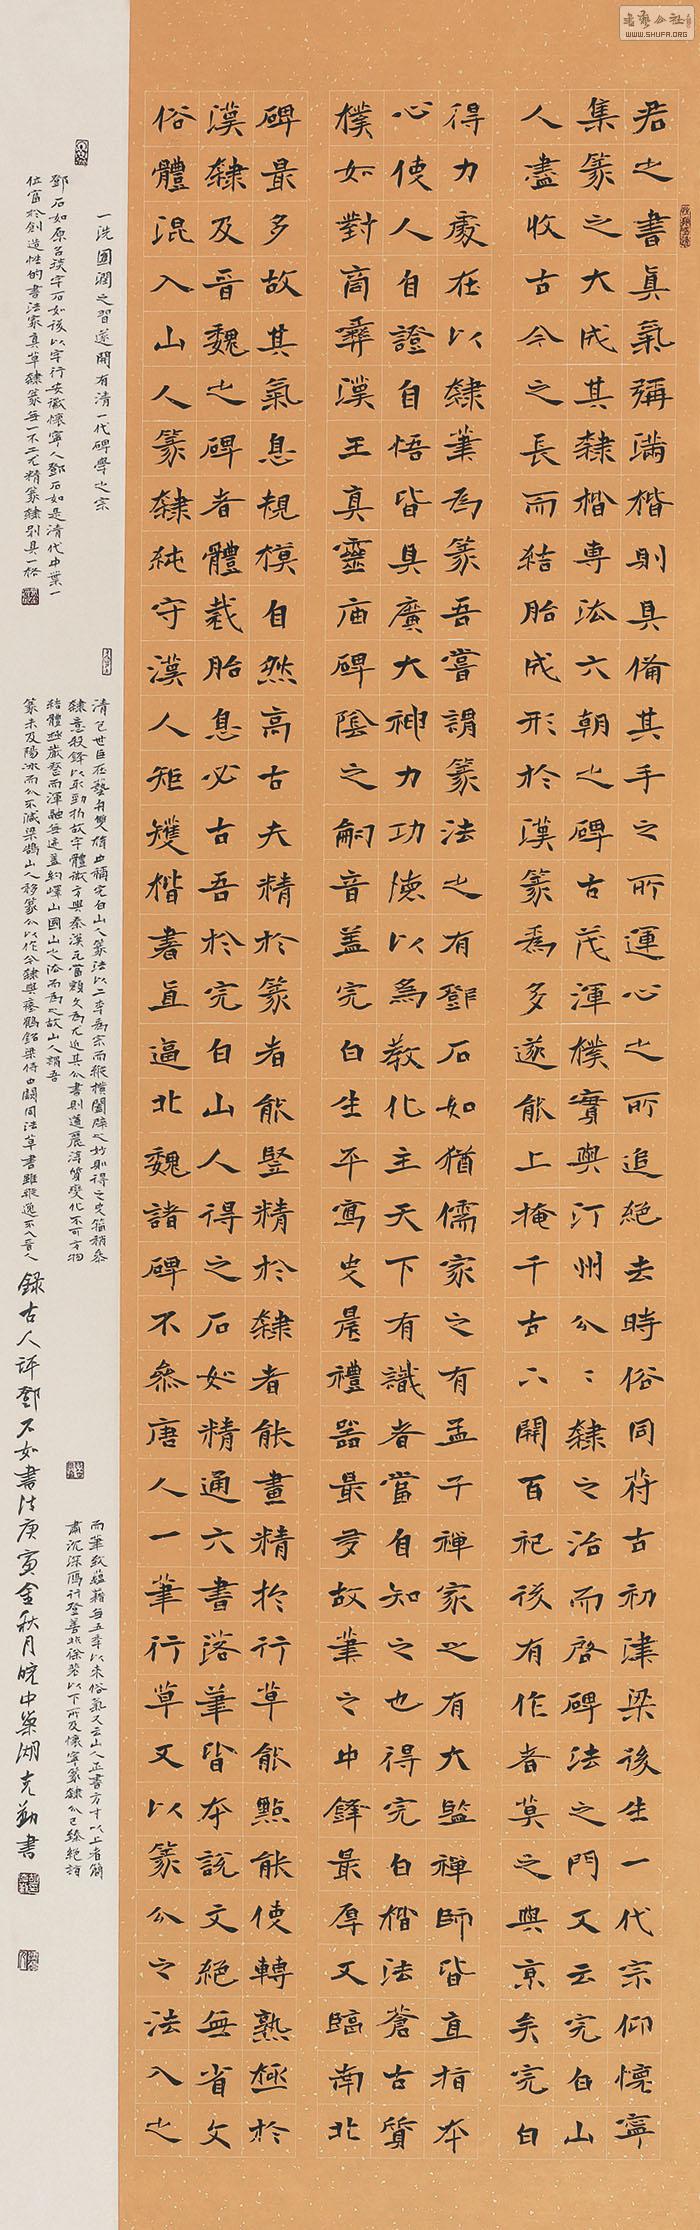 书法公社
WWW.SHUFA.ORG
君之書真氣彌滿楷則具備其手之所運心之所追絕去時俗同符古初津梁後生一代宗仰懷寧
集篆之大成其隸楷專法六朝之碑古茂渾樸實與汀州公〻隸之治而啓碑法之門又云完白山
人盡收古今之長而結胎成形於漢篆為多遂能上掩千古下開百祀後有作者莫之與京矣完白
得力處在以隸筆為篆吾嘗謂篆法之有鄧石如猶儒家之有孟子禅家之有大鉴禅師皆直指本
心使人自證自悟皆具廣大神力功德以為教化主天下有識者當自知之也得完白楷法蒼古質
樸如對商彝漢玉真靈庙碑陰之嗣音盖完白生平寫史晨禮器最多故筆之中鋒最厚又臨南北
碑最多故其氣息規模自然高古夫精於篆者能竪精於隸者能畫精於行草能點能使轉熟極於
漢隸及晋魏之碑者體裁胎息必古吾於完白山人得之石如精通六書落筆皆本說文絕無省文
俗體混入山人篆隸純守漢人矩矱楷書直逼北魏諸碑不參唐人一筆行草又以篆分之法入之
一洗圓潤之習遂開有清一代碑學之宗
鄧石如原名琰字石如後以字行安徽懷寧人鄧石如是清代中葉一
位富於創造性的書法家真草隸篆每一不工尤精篆隸别具一格
清包世臣在藝舟雙楫中稱完白山人篆法以二李為宗而縱橫闔辟之妙則得之史籀稍參
隸意殺鋒以取勁折故字體微方與秦漢瓦當額文為尤近其分書則遒麗淳質變化不可方物
結體極嚴整而渾融無迹蓋約嶧山國山之法而為之故山人謂吾
篆未及陽冰而分不減梁鵠山人移篆分以作今隸與瘞鶴銘梁侍中闕同法草書雖縱逸不入晋人
而筆致蘊藉每五季以來俗氣又云山人正書方寸以上者簡
肅沉深雁行登善非徐裴以下所及懷寧篆隸分已臻絕詣
錄古人评鄧石如書法庚寅金秋月皖中巢湖克勤書